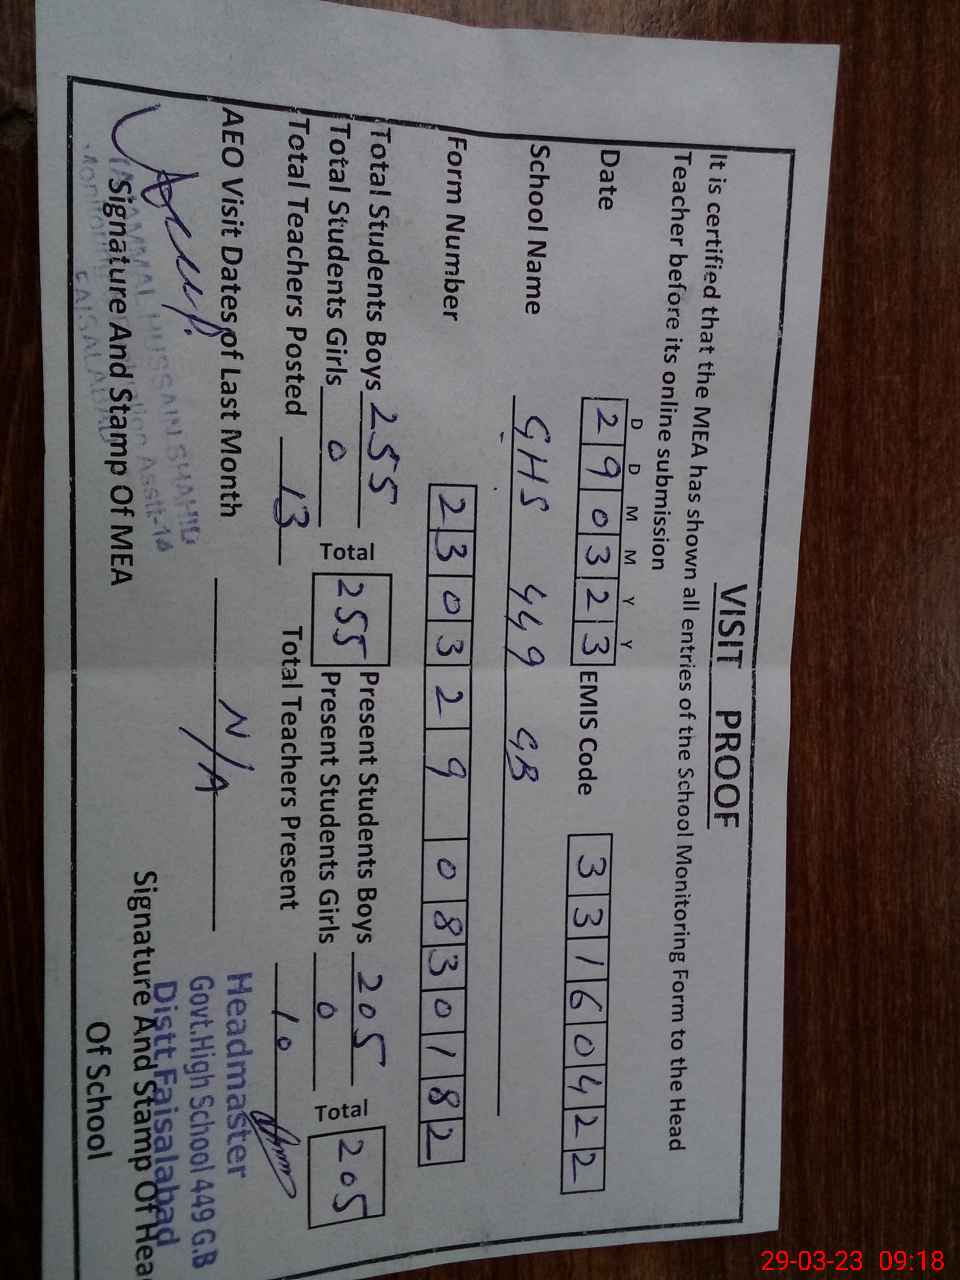 VISIT PROOF
It is certified that the MEA has shown all entries of the School Monitoring Form to the Head
Teacher before its online submission
D D M M Y Y
Date 290323 EMIS Code 33160422
School Name GHS 449 GB
Form Number 230329 0830182
Total Students Boys 255 Total 255 Present Students Boys 205 Total 205
Total Students Girls 0 Present Students Girls 0
Total Teachers Posted 13 Total Teachers Present 10
AEO Visit Dates of Last Month N/A
HUSSAIN SHAHID
Asstt-14
FAISALABAD
Signature And Stamp Of MEA
Headmaster
Govt.High School 449 G.B
Distt.Faisalabad
Signature And Stamp Of Hea
Of School
29-03-23 09:18